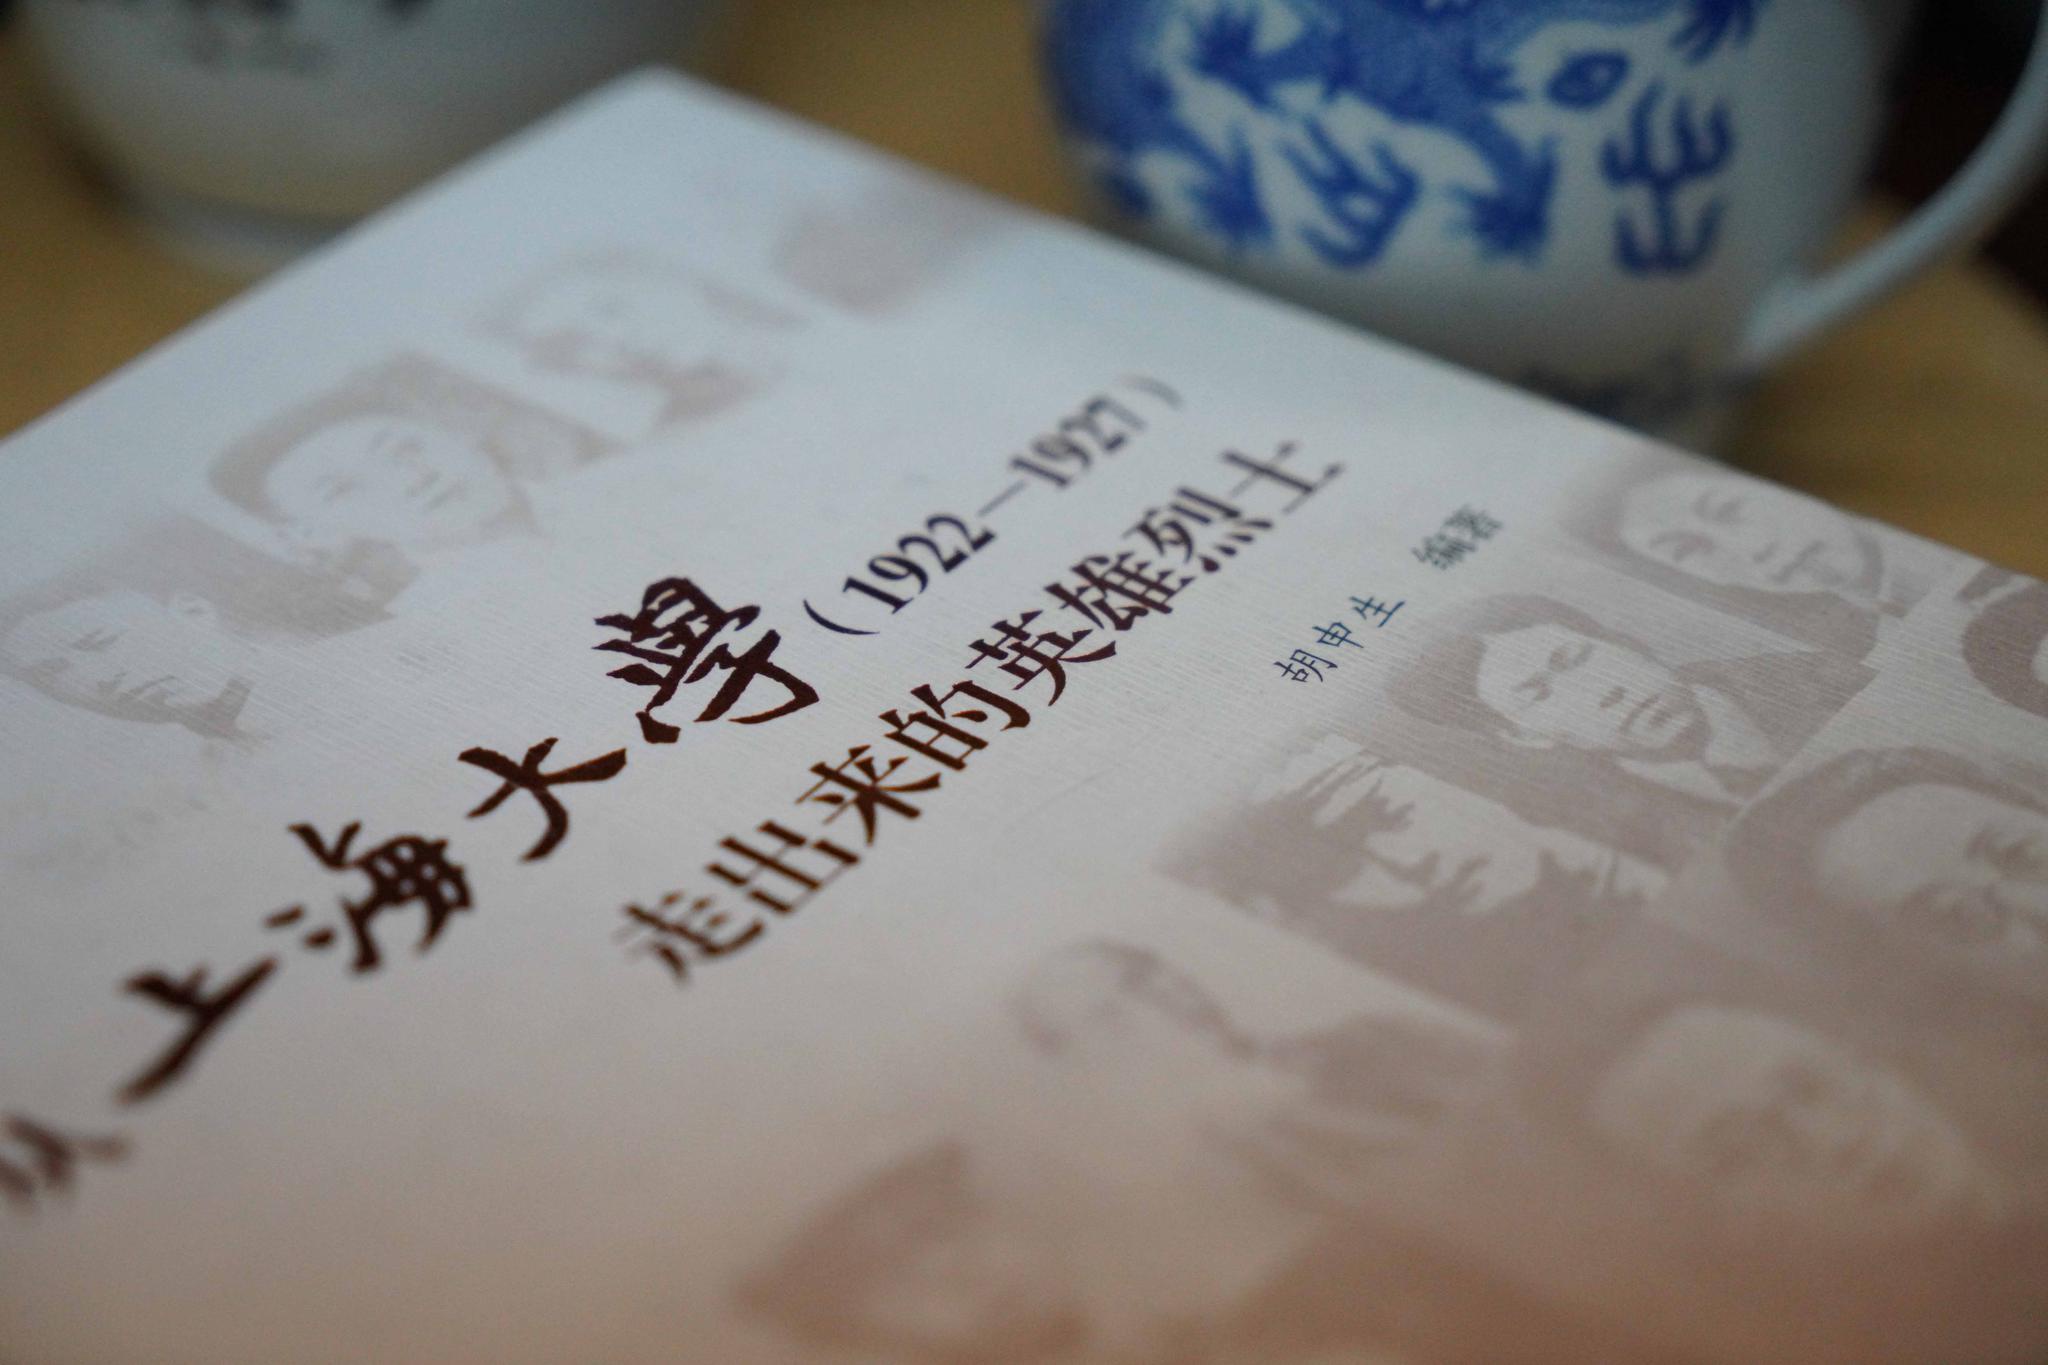 从上海大學（1922—1927）
走出来的英雄烈士
胡申生 编著